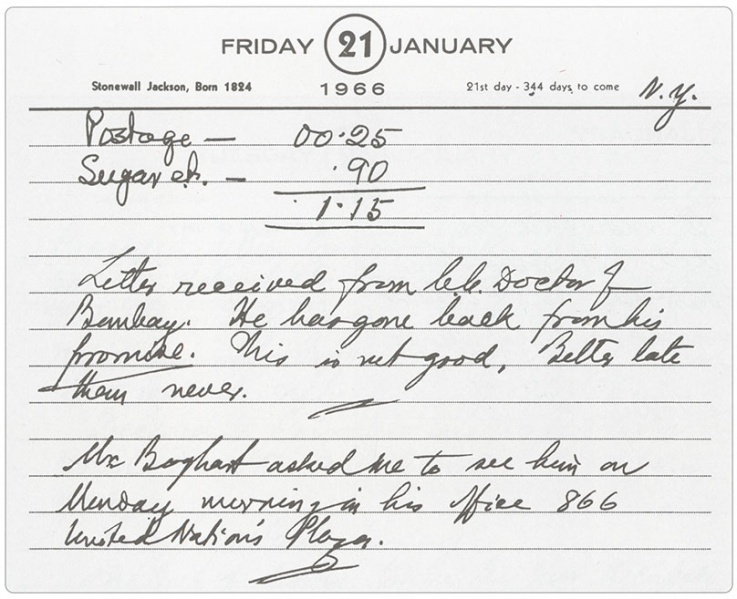 FRIDAY 21 JANUARY
Stonewall Jackson, Born 1824 1966 21st day - 344 days to come N.Y.
Postage — 00.25
Sugar etc. — .90
1.15
Letter received from Doctor of
Bombay. He has gone back from his
promise. This is not good, Better late
than never.
Mr Boghart asked me to see him on
Monday morning in his office 866
United Nation's Plaza.